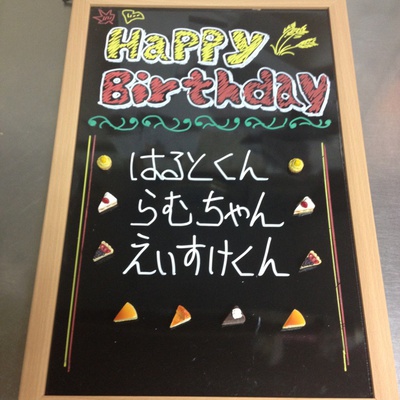 Happy
Birthday
はるとくん
らむちゃん
えいすけくん